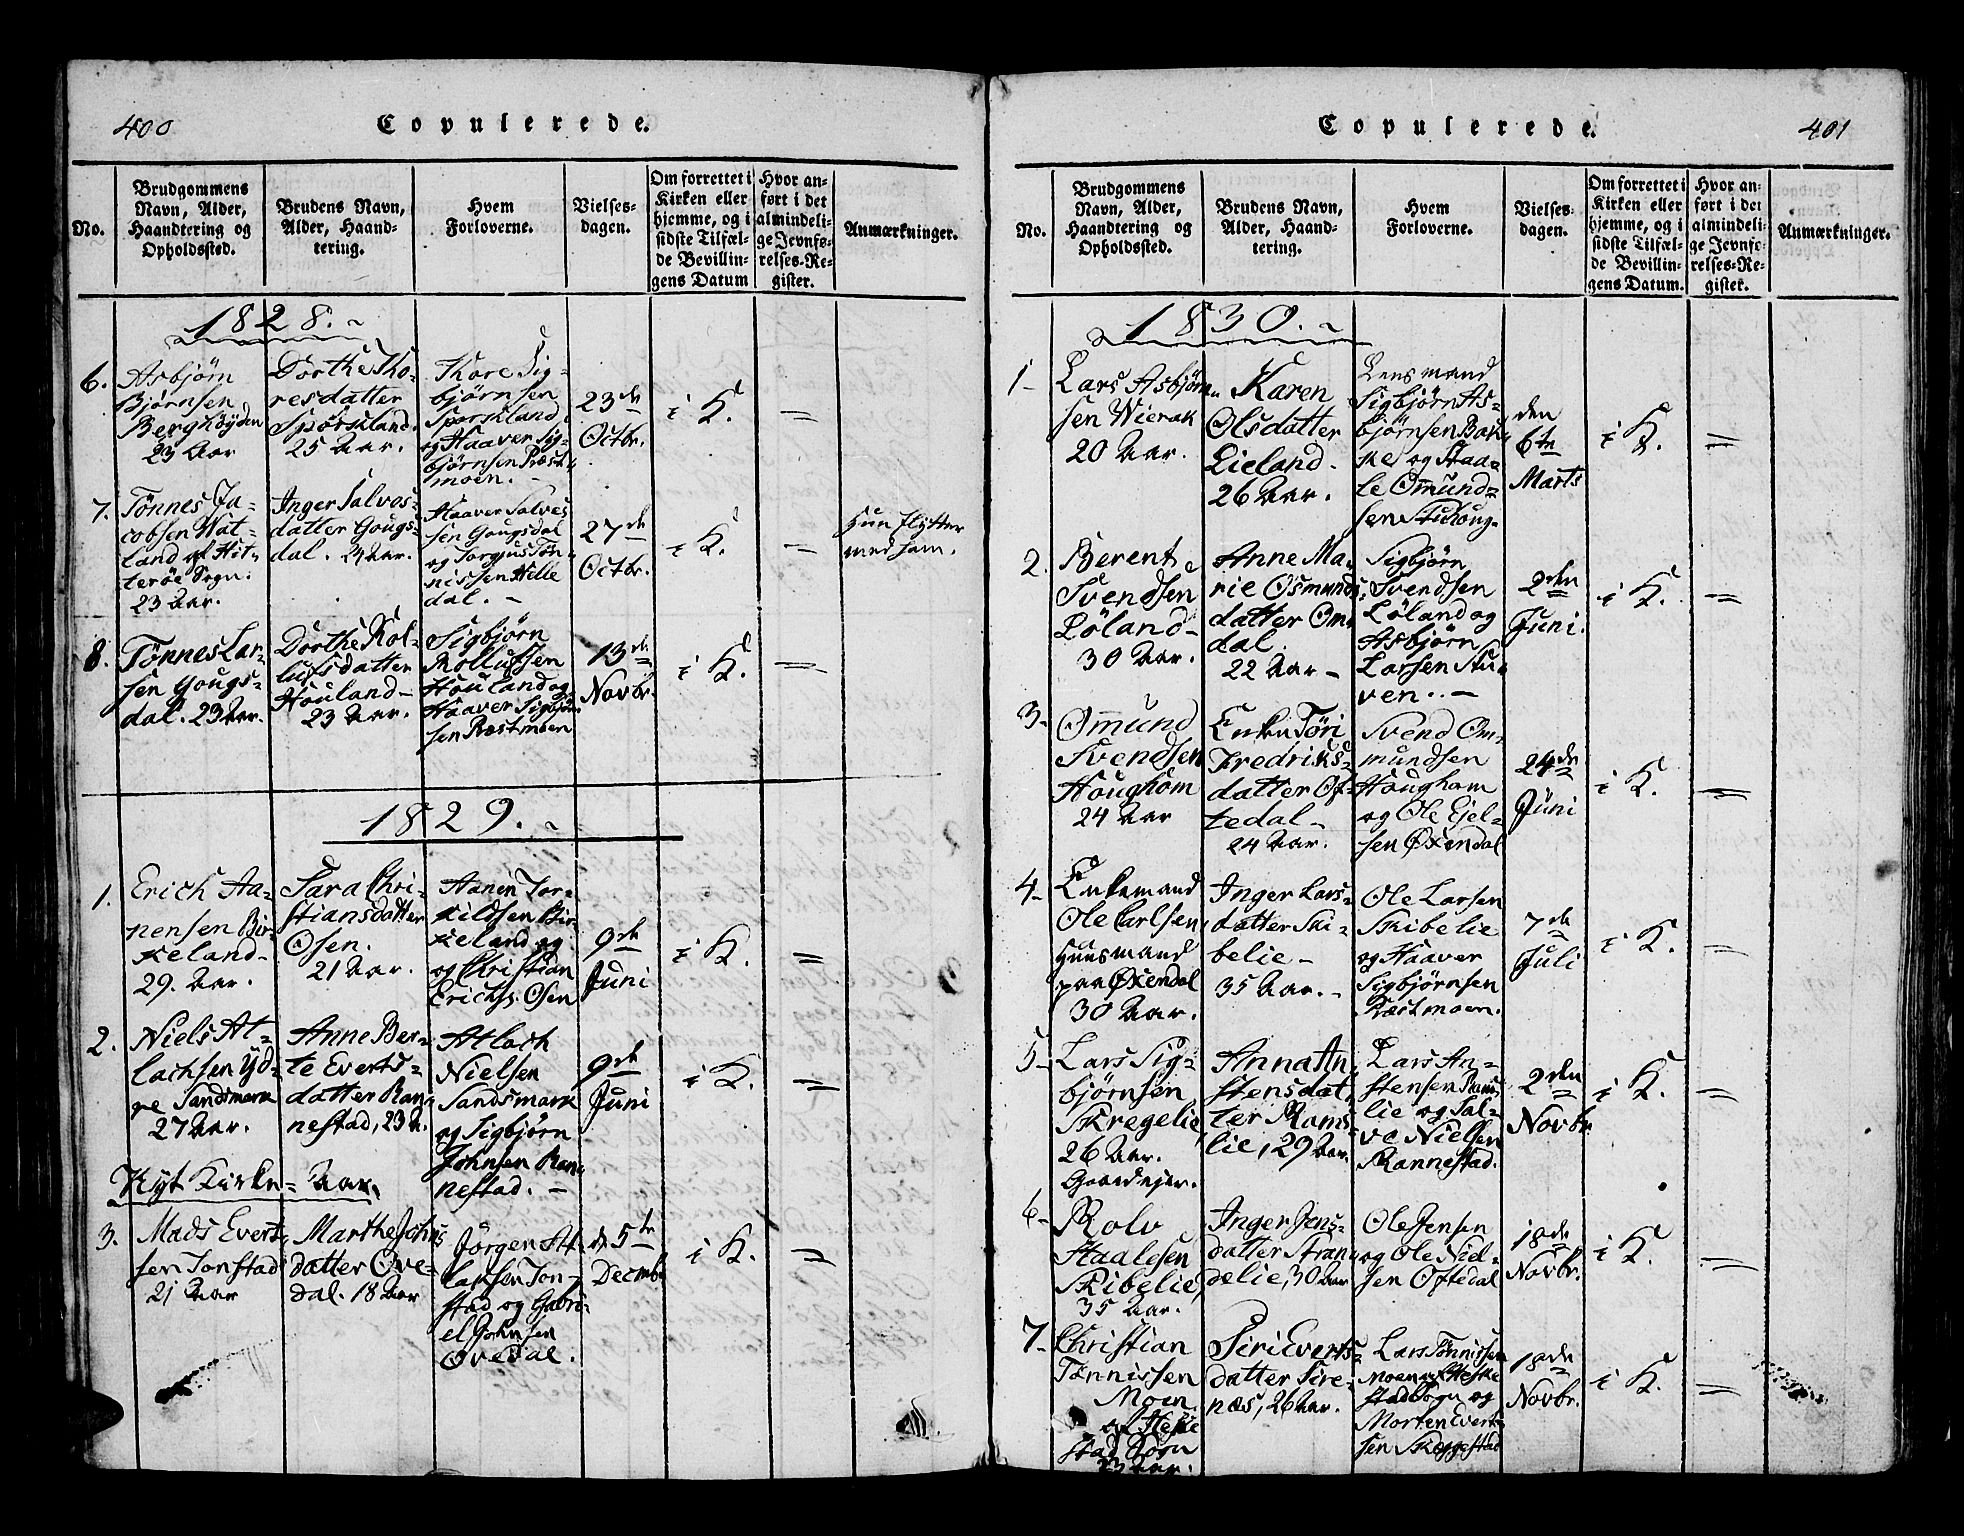 400
Copulerede.
No.
Brudgommens
Navn, Alder,
Haandtering og
Opholdssted.
Brudens Navn,
Alder, Haand-
tering.
Hvem
Forloverne.
Vielses-
dagen.
Om forrettet i
Kirken eller
hjemme, og i
sidste Tilfæl-
de Bevillin-
gens Datum
Hvor an-
ført i det
almindeli-
ge Jevnfø-
relses-Re-
gister.
Anmærkninger.
1828.
6.
Asbjørn
Bjørnsen
Berghøyden
23 Aar
Dorthe Tho-
resdatter
Spörskland.
25 Aar.
Thore Sig-
bjørnsen
Sporskland,
og Haaver Sig-
bjørnsen Præst-
moen.
23de
Octbr.
i K.
=
7.
Tønnes Ja-
cobsen Wat-
land af Hit-
terøe Sogn.
23 Aar.
Inger Salves-
datter Gougs-
dal. 24 Aar.
Haaver Salves
sen Gougsdal
og Torgus Tön-
nissen Helle
dal.
27de
Octbr.
i K.
=
Hun flytter
med ham.
8.
Tønnes Lar-
sen Gougs-
dal. 23 Aar.
Dorthe Rol-
lufsdatter
Houland
23 Aar.
Sigbjørn
Rollufsen
Houland og
Haaver Sigbjørn
sen Præstmoen
13de
Novbr.
i K.
=
1829.
1.
Erich Aa-
nensen Bir-
keland
29. Aar.
Sara Chri-
stiansdatter
Osen.
21 Aar.
Aanen Tor-
kildsen Bir-
keland og
og Christian
Erichs. Osen
9de
Juni
i K.
=
2.
Niels At-
lachsen Yd-
re Sandsmark
27 Aar.
Anne Ber-
te Everts-
datter Ran-
nestad, 23 A.
Atlach
Nielsen
Sandsmark
og Sigbjørn
Johnsen Ran-
nestad.
9de
Juni
i K.
=
Nyt Kirke-Aar.
3.
Mads Evert-
sen Tonstad
21 Aar
Marthe Johns
datter Ove-
dal. 18 Aar
Jörgen At-
laksen Ton-
stad og Gabri-
el Johnsen
Ovedal.
d. 5te
Decmb
i K.
=
Copulerede.
401
No.
Brudgommens
Navn, Alder,
Haandtering og
Opholdssted.
Brudens Navn,
Alder, Haand-
tering.
Hvem
Forloverne.
Vielses-
dagen.
Om forrettet i
Kirken eller
hjemme, og i
sidste Tilfæl-
de Bevillin-
gens Datum.
Hvor an-
ført i det
almindeli-
ge Jevnfø-
relses-Re-
gister.
Anmærkninger.
1830.
1
Lars Asbjørn-
sen Wierak
20 Aar.
Karen
Olsdatter
Lieland.
26 Aar.
Lensmand
Sigbjørn As-
bjørnsen Bak-
ke og Staa-
le Omund-
sen
den
6te
Marts
i K.
=
2.
Berent
Svendsen
Löland
30 Aar.
Anne Ma-
rie Osmunds
datter Om-
dal.
22 Aar
Sigbjørn
Svendsen
Löland og
Asbjørn
Larsen Stu-
ven.
2den
Juni.
i K.
=
3
Omund
Svendsen
Houghom
24 Aar
Enken Töri
Fredriks-
datter Of-
tedal
24 Aar.
Svend Om-
mundsen
Hougham
og Ole Ejel-
sen Øxendal
24de
Juni
i K.
=
4
Enkemand
Ole Carlsen
Huusmand
paa Øxendal
30 Aar.
Inger Lars-
datter Ski-
belie
35 Aar.
Ole Larsen
Skibelie
og Haaver
Sigbjørnsen
Præstmoen.
7de
Juli
i K.
=
5
Lars Sig-
bjørnsen
Skregelie,
26 Aar.
Gaardejer.
Anna An-
stensdat-
ter Rams-
lie, 29 Aar.
Lars An-
stensen Rams-
lie og Sal-
ve Nielsen
Rannestad.
2den
Novbr
i K.
=
6
Rolv
Staalesen
Skibelie,
35 Aar.
Inger Jens-
datter Stran-
delie, 30 Aar
Ole Jensen
og Ole Niel-
sen Oftedal
18de
Novbr.
i K.
=
7
Christian
Tönnissen
Moen
af Heske
stad Sogn
23 Aar.
Siri Everts-
datter Sire-
næs, 26 Aar.
Lars Tönnissen
Moen af Heske
stad Sogn og
Morten Evert-
sen Skeggestad
18de
Novbr.
i K.
=